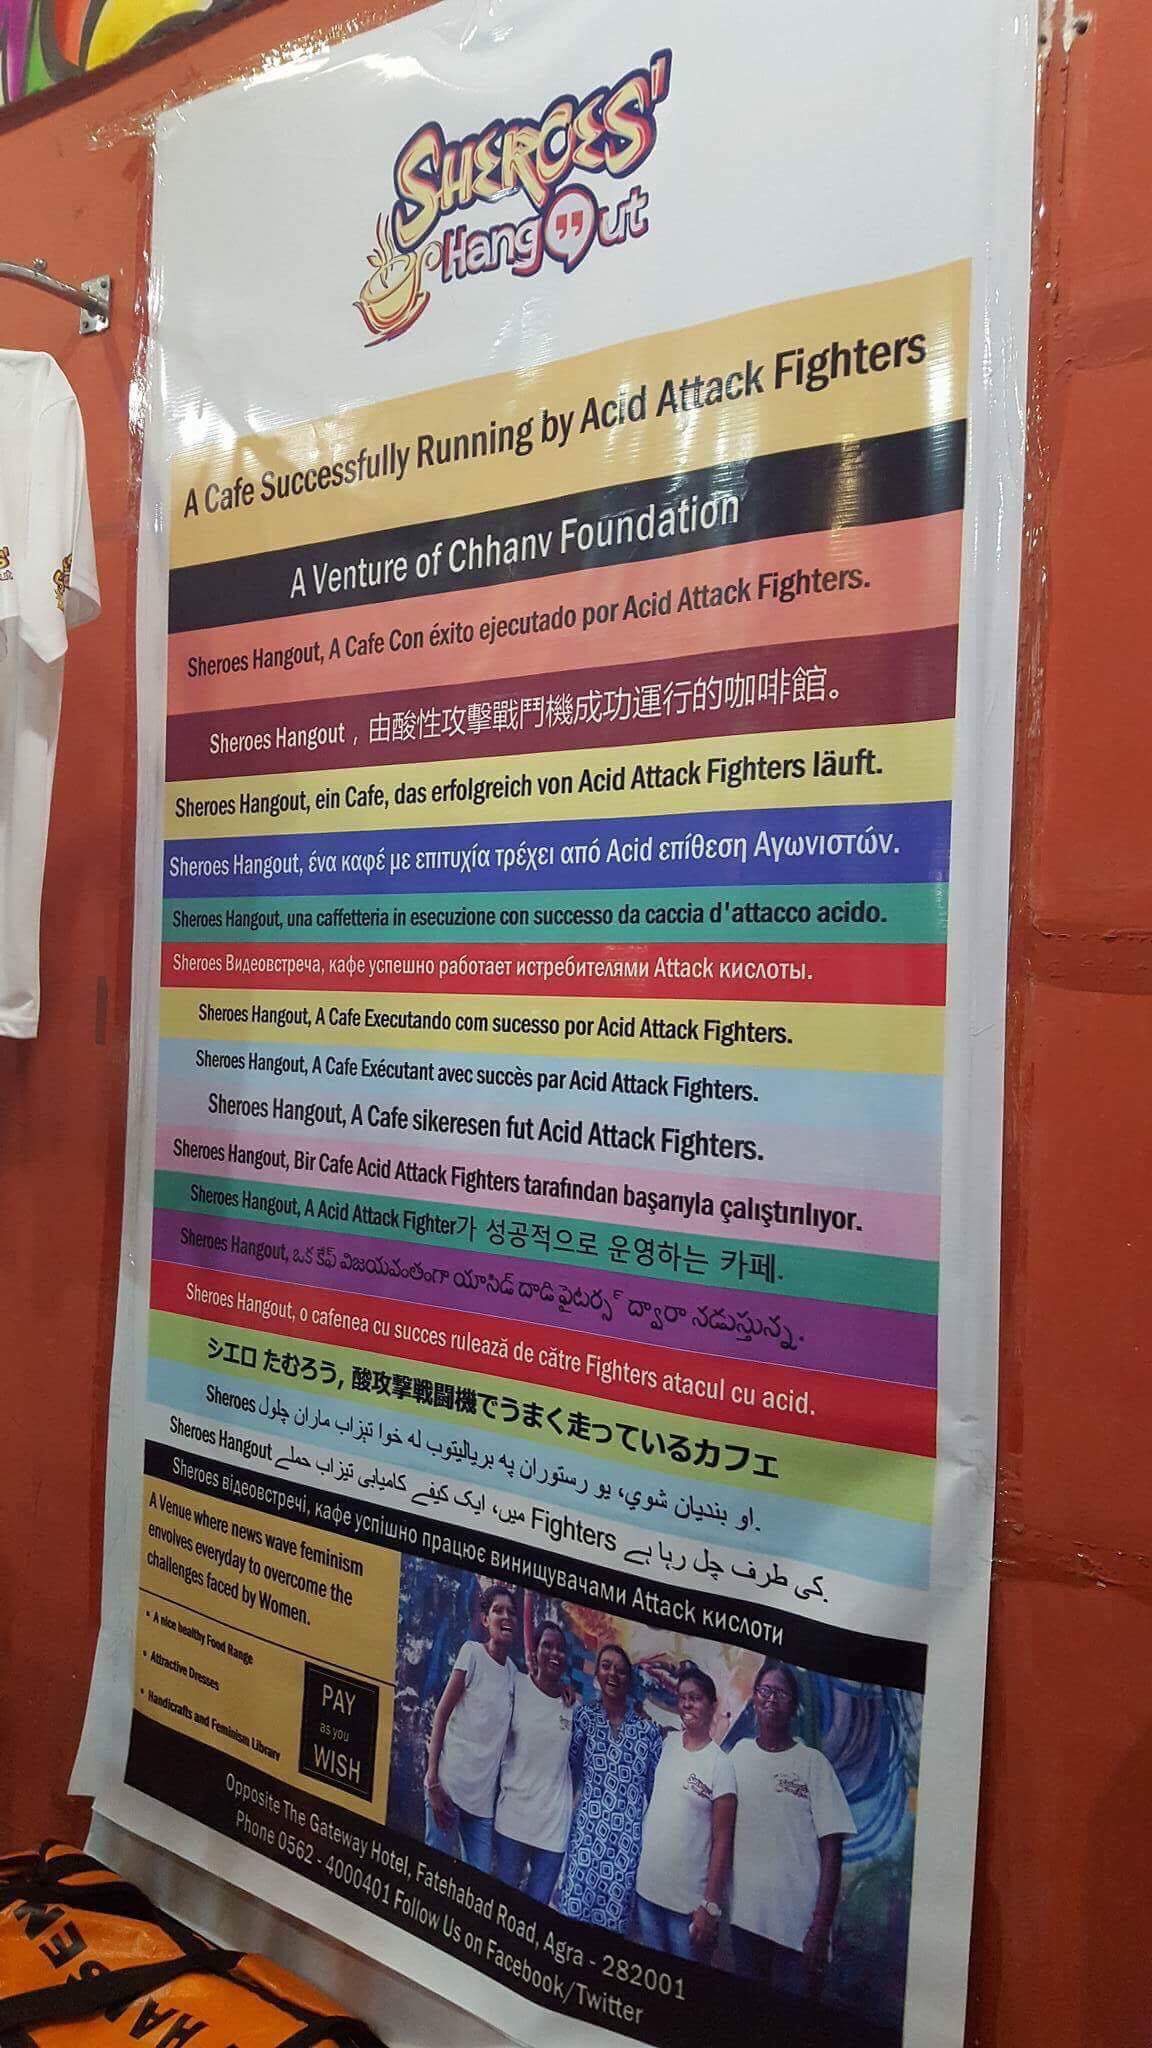 SHEROES'
HangOut
A Cafe Successfully Running by Acid Attack Fighters
A Venture of Chhanv Foundation
Sheroes Hangout, A Cafe Con éxito ejecutado por Acid Attack Fighters.
Sheroes Hangout，由酸性攻擊戰鬥機成功運行的咖啡館。
Sheroes Hangout, ein Cafe, das erfolgreich von Acid Attack Fighters läuft.
Sheroes Hangout, ένα καφέ με επιτυχία τρέχει από Acid επίθεση Αγωνιστών.
Sheroes Hangout, una caffetteria in esecuzione con successo da caccia d'attacco acido.
Sheroes Видеовстреча, кафе успешно работает истребителями Attack кислоты.
Sheroes Hangout, A Cafe Executando com sucesso por Acid Attack Fighters.
Sheroes Hangout, A Cafe Exécutant avec succès par Acid Attack Fighters.
Sheroes Hangout, A Cafe sikeresen fut Acid Attack Fighters.
Sheroes Hangout, Bir Cafe Acid Attack Fighters tarafından başarıyla çalıştırılıyor.
Sheroes Hangout, A Acid Attack Fighter가 성공적으로 운영하는 카페.
Sheroes Hangout, ఒక కేఫ్ విజయవంతంగా యాసిడ్ దాడి ఫైటర్స్ ద్వారా నడుస్తున్న.
Sheroes Hangout, o cafenea cu succes rulează de către Fighters atacul cu acid.
シエロ たむろう, 酸攻撃戦闘機でうまく走っているカフェ
Sheroes او بنديان شوي، يو رستوران په برياليتوب له خوا تېزاب ماران چلول.
Sheroes Hangout میں، ایک کیفے کامیابی تیزاب حملے Fighters کی طرف چل رہا ہے.
Sheroes відеовстречі, кафе успішно працює винищувачами Attack кислоти
A Venue where news wave feminism
envolves everyday to overcome the
challenges faced by Women.
• A nice healthy Food Range
• Attractive Dresses
• Handicrafts and Feminism Library
PAY
as you
WISH
Opposite The Gateway Hotel, Fatehabad Road, Agra - 282001
Phone 0562 - 4000401 Follow Us on Facebook/Twitter